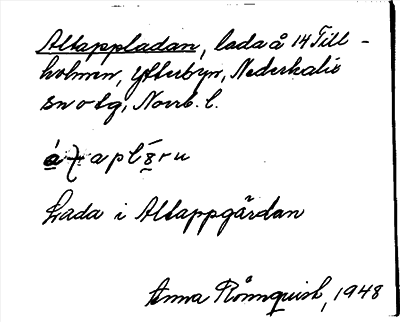 Altappladan, lada å 14 Till-
holmen, Ytterbyn, Nederkalix
sn o tg, Norrb. l.
Lada i Altappgärdan
Anna Rönnquist, 1948